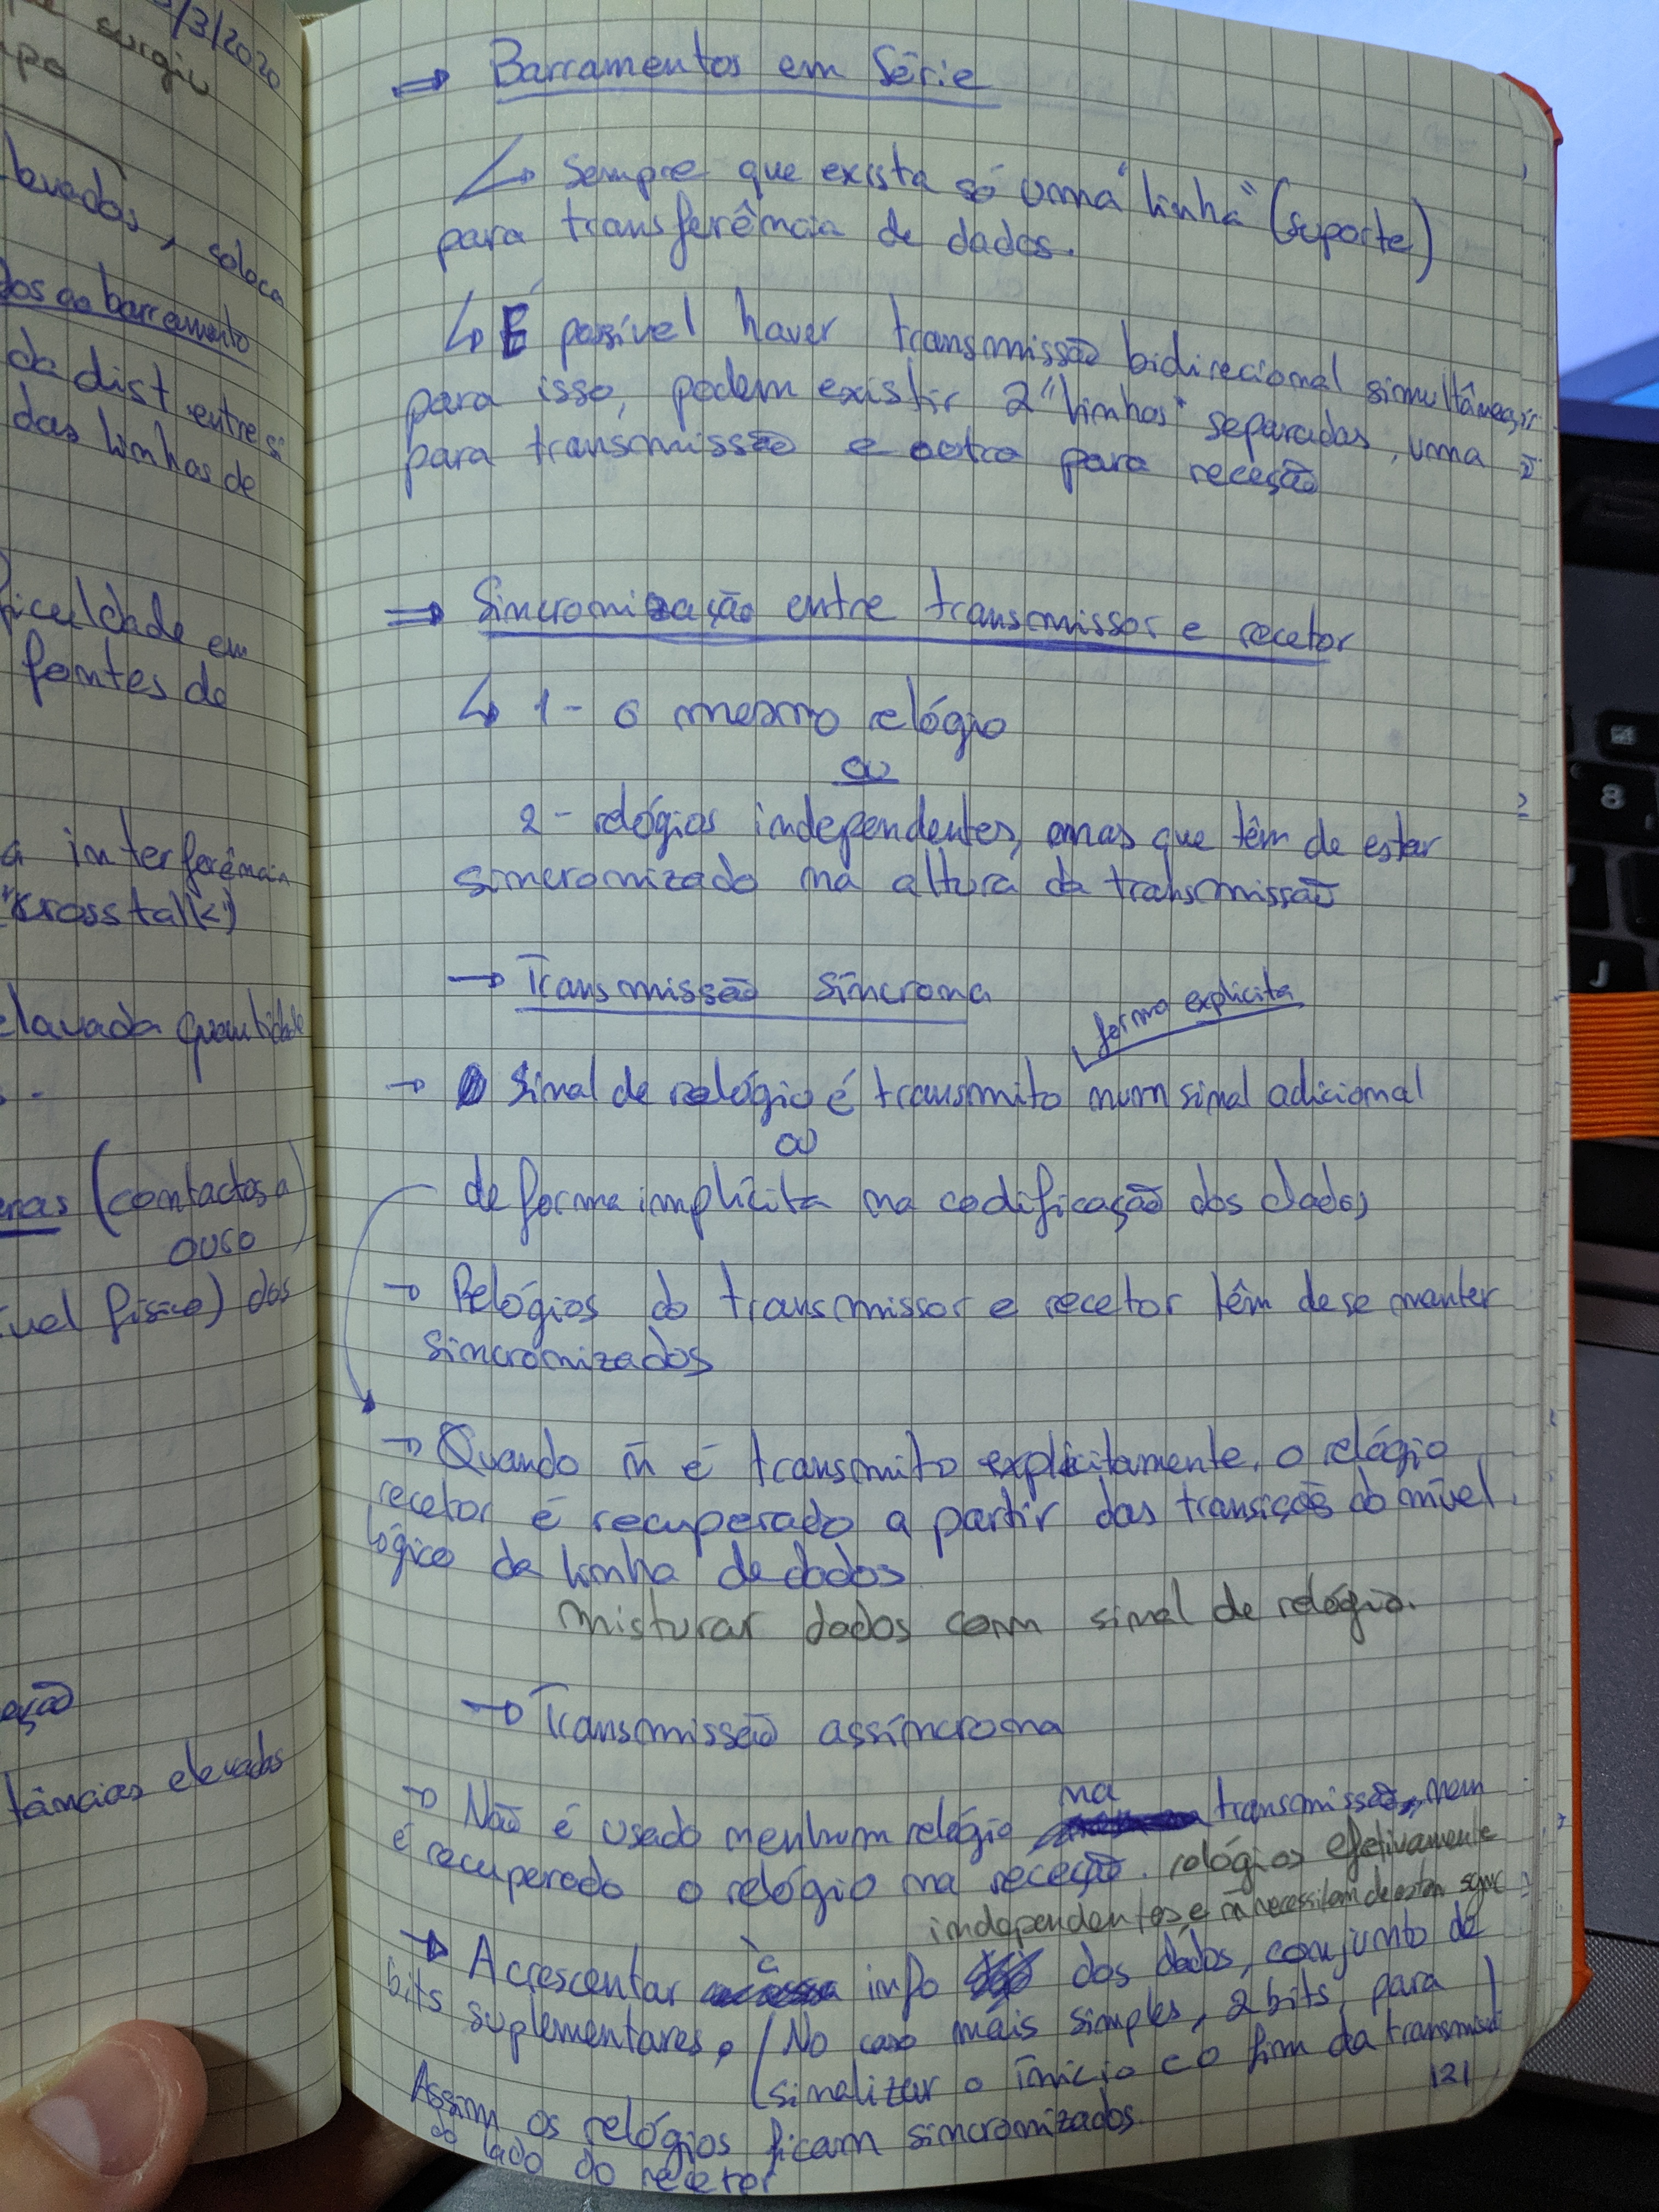 /3/2020
surgiu
levados, coloca
dos ao barramento
da dist entre si
das linhas de
ficuldade em
fontes de
a interferência
"crosstalk")
elevada quantidade
(contactos a
ouro)
ível físico) dos
eção
tâncias elevadas
⇒ Barramentos em Série
↳ sempre que exista só uma "linha" (suporte)
para transferência de dados.
↳ É possível haver transmissão bidirecional simultânea,
para isso, podem existir 2 "linhas" separadas, uma
para transmissão e outra para receção
⇒ Sincronização entre transmissor e recetor
↳ 1 - o mesmo relógio
ou
2 - relógios independentes, mas que têm de estar
sincronizado na altura da transmissão
→ Transmissão síncrona
forma explicita
→ Sinal de relógio é transmito num sinal adicional
ou
de forma implícita na codificação dos dados
→ Relógios do transmissor e recetor têm de se manter
sincronizados
→ Quando ñ é transmito explicitamente, o relógio
recetor é recuperado a partir das transições do nível
lógico da linha de dados
Misturar dados com sinal de relógio.
→ Transmissão assíncrona
na
→ Não é usado nenhum relógio transmissão, nem
é recuperado o relógio na receção. relógios efetivamente
independentes, e ñ necessitam de estar sync
→ Acrescentar à info dos dados, conjunto de
bits suplementares. (No caso mais simples, 2 bits, para
sinalizar o início e o fim da transmissão)
121
Assim os relógios ficam sincronizados
do lado do recetor